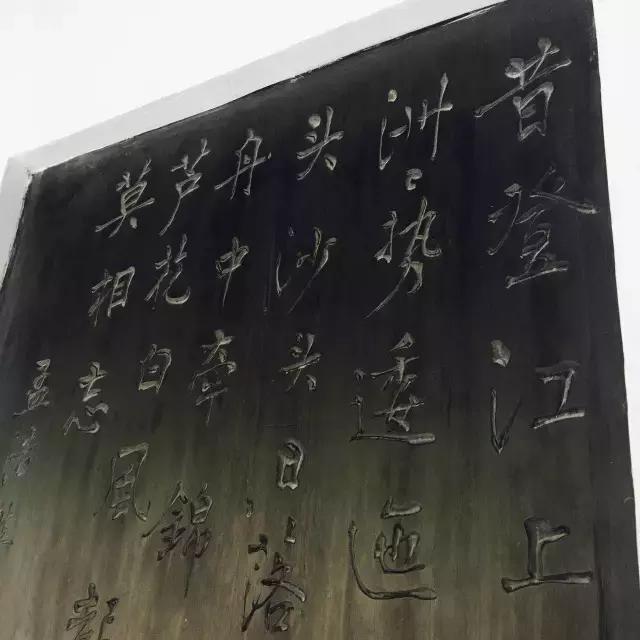 昔登江上
洲々势逶迤
头沙头日落
舟中牵锦
芦花白风
莫相忘
孟浩然